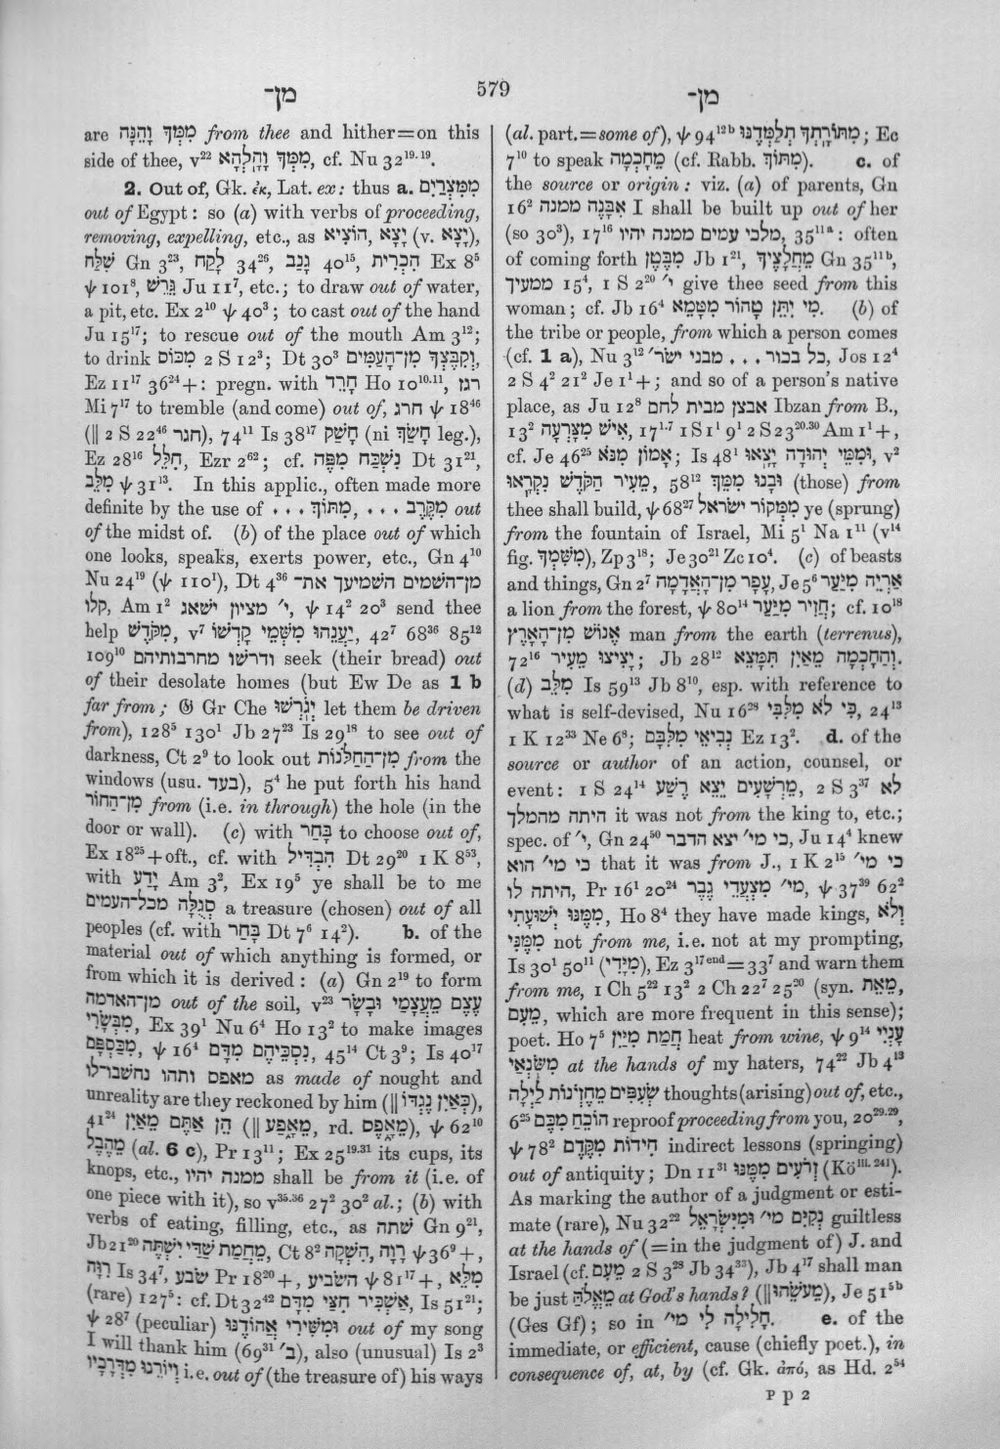 מִן־
579
מִן־
are מִמְּךָ וָהֵנָּה from thee and hither=on this
side of thee, v²² מִמְּךָ וָהָלְאָה, cf. Nu 32¹⁹·¹⁹.
2. Out of, Gk. ἐκ, Lat. ex: thus a. מִמִּצְרַיִם
out of Egypt: so (a) with verbs of proceeding,
removing, expelling, etc., as יָצָא, הוֹצִיא (v. יָצָא),
שִׁלַּח Gn 3²³, לָקַח 34²⁶, גנב 40¹⁵, הִכְרִית Ex 8⁵
ψ 101⁸, גֵּרֵשׁ Ju 11⁷, etc.; to draw out of water,
a pit, etc. Ex 2¹⁰ ψ 40³; to cast out of the hand
Ju 15¹⁷; to rescue out of the mouth Am 3¹²;
to drink מִכּוֹס 2 S 12³; Dt 30³ וְקִבֶּצְךָ מִן־הָעַמִּים,
Ez 11¹⁷ 36²⁴+: pregn. with חָרֵד Ho 10¹⁰·¹¹, רגז
Mi 7¹⁷ to tremble (and come) out of, חרג ψ 18⁴⁶
(‖ 2 S 22⁴⁶ חגר), 74¹¹ Is 38¹⁷ חָשַׁק (ni חָשַׂךְ leg.),
Ez 28¹⁶ חִלֵּל, Ezr 2⁶²; cf. נִשְׁכַּח מִפֶּה Dt 31²¹,
מִלֵּב ψ 31¹³. In this applic., often made more
definite by the use of . . . מִתּוֹךְ, . . . מִקֶּרֶב out
of the midst of. (b) of the place out of which
one looks, speaks, exerts power, etc., Gn 4¹⁰
Nu 24¹⁹ (ψ 110¹), Dt 4³⁶ מן־השמים השמיעך את־
קלו, Am 1² י״ מציון ישאג, ψ 14² 20³ send thee
help מִקֹּדֶשׁ, v⁷ יַעֲנֵהוּ מִשְּׁמֵי קָדְשׁוֹ, 42⁷ 68³⁶ 85¹²
109¹⁰ ודרשו מחרבותיהם seek (their bread) out
of their desolate homes (but Ew De as 1 b
far from; 𝔊 Gr Che יְגֹרְשׁוּ let them be driven
from), 128⁵ 130¹ Jb 27²³ Is 29¹⁸ to see out of
darkness, Ct 2⁹ to look out מִן־הַחַלֹּנוֹת from the
windows (usu. בעד), 5⁴ he put forth his hand
מִן־הַחוֹר from (i.e. in through) the hole (in the
door or wall). (c) with בָּחַר to choose out of,
Ex 18²⁵+oft., cf. with הִבְדִּיל Dt 29²⁰ 1 K 8⁵³,
with יָדַע Am 3², Ex 19⁵ ye shall be to me
סְגֻלָּה מכל־העמים a treasure (chosen) out of all
peoples (cf. with בָּחַר Dt 7⁶ 14²). b. of the
material out of which anything is formed, or
from which it is derived: (a) Gn 2¹⁹ to form
מן־האדמה out of the soil, v²³ עֶצֶם מֵעֲצָמַי וּבָשָׂר
מִבְּשָׂרִי, Ex 39¹ Nu 6⁴ Ho 13² to make images
מִכַּסְפָּם, ψ 16⁴ נִסְכֵּיהֶם מִדָּם, 45¹⁴ Ct 3⁹; Is 40¹⁷
מאפס ותהו נחשבו־לו as made of nought and
unreality are they reckoned by him (‖ כְּאַיִן נֶגְדּוֹ),
41²⁴ הֵן אַתֶּם מֵאַיִן (‖ מֵאָפַע, rd. מֵאֶפֶס), ψ 62¹⁰
מֵהֶבֶל (al. 6 c), Pr 13¹¹; Ex 25¹⁹·³¹ its cups, its
knops, etc., ממנה יהיו shall be from it (i.e. of
one piece with it), so v³⁵·³⁶ 27² 30² al.; (b) with
verbs of eating, filling, etc., as שתה Gn 9²¹,
Jb 21²⁰ מֵחֲמַת שַׁדַּי יִשְׁתֶּה, Ct 8² הִשְׁקָה, רָוָה ψ 36⁹+,
רִוָּה Is 34⁷, שבע Pr 18²⁰+, השביע ψ 81¹⁷+, מִלֵּא
(rare) 127⁵: cf. Dt 32⁴² אַשְׁכִּיר חִצַּי מִדָּם, Is 51²¹;
ψ 28⁷ (peculiar) וּמִשִּׁירִי אֲהוֹדֶנּוּ out of my song
I will thank him (69³¹ ב״), also (unusual) Is 2³
וְיוֹרֵנוּ מִדְּרָכָיו i.e. out of (the treasure of) his ways
(al. part.=some of), ψ 94¹²ᵇ מִתּוֹרָתְךָ תְלַמְּדֶנּוּ; Ec
7¹⁰ to speak מֵחָכְמָה (cf. Rabb. מִתּוֹךְ). c. of
the source or origin: viz. (a) of parents, Gn
16² אִבָּנֶה ממנה I shall be built up out of her
(so 30³), 17¹⁶ מלכי עמים ממנה יהיו, 35¹¹ᵃ: often
of coming forth מִבֶּטֶן Jb 1²¹, מֵחֲלָצֶיךָ Gn 35¹¹ᵇ,
ממעיך 15⁴, 1 S 2²⁰ י״ give thee seed from this
woman; cf. Jb 16⁴ מִי יִתֵּן טָהוֹר מִטָּמֵא. (b) of
the tribe or people, from which a person comes
(cf. 1 a), Nu 3¹² כל בכור . . . מבני ישר״, Jos 12⁴
2 S 4² 21² Je 1¹+; and so of a person's native
place, as Ju 12⁸ אבצן מבית לחם Ibzan from B.,
13² אִישׁ מִצָּרְעָה, 17¹·⁷ 1 S 1¹ 9¹ 2 S 23²⁰·³⁰ Am 1¹+,
cf. Je 46²⁵ אָמוֹן מִנֹּא; Is 48¹ וּמִמֵּי יְהוּדָה יָצָאוּ, v²
מֵעִיר הַקֹּדֶשׁ נִקְרָאוּ, 58¹² וּבָנוּ מִמְּךָ (those) from
thee shall build, ψ 68²⁷ מִמְּקוֹר ישראל ye (sprung)
from the fountain of Israel, Mi 5¹ Na 1¹¹ (v¹⁴
fig. מִשִּׁמְךָ), Zp 3¹⁸; Je 30²¹ Zc 10⁴. (c) of beasts
and things, Gn 2⁷ עָפָר מִן־הָאֲדָמָה, Je 5⁶ אַרְיֵה מִיַּעַר
a lion from the forest, ψ 80¹⁴ חֲזִיר מִיַּעַר; cf. 10¹⁸
אֱנוֹשׁ מִן־הָאָרֶץ man from the earth (terrenus),
72¹⁶ יָצִיצוּ מֵעִיר; Jb 28¹² וְהַחָכְמָה מֵאַיִן תִּמָּצֵא.
(d) מִלֵּב Is 59¹³ Jb 8¹⁰, esp. with reference to
what is self-devised, Nu 16²⁸ כִּי לֹא מִלִּבִּי, 24¹³
1 K 12³³ Ne 6⁸; נְבִיאֵי מִלִּבָּם Ez 13². d. of the
source or author of an action, counsel, or
event: 1 S 24¹⁴ מֵרְשָׁעִים יֵצֵא רֶשַׁע, 2 S 3³⁷ לא
היתה מהמלך it was not from the king to, etc.;
spec. of י״, Gn 24⁵⁰ כי מי״ יצא הדבר, Ju 14⁴ knew
כי מי״ הוא that it was from J., 1 K 2¹⁵ כי מי״
היתה לו, Pr 16¹ 20²⁴ מי״ מִצְעֲדֵי גֶבֶר, ψ 37³⁹ 62²
מִמֶּנּוּ יְשׁוּעָתִי, Ho 8⁴ they have made kings, וְלֹא
מִמֶּנִּי not from me, i.e. not at my prompting,
Is 30¹ 50¹¹ (מִיָּדִי), Ez 3¹⁷ᵉⁿᵈ=33⁷ and warn them
from me, 1 Ch 5²² 13² 2 Ch 22⁷ 25²⁰ (syn. מֵאֵת,
מֵעִם, which are more frequent in this sense);
poet. Ho 7⁵ חֲמַת מִיָּיִן heat from wine, ψ 9¹⁴ עָנְיִי
מִשֹּׂנְאָי at the hands of my haters, 74²² Jb 4¹³
שְׂעִפִּים מֵחֶזְיוֹנוֹת לָיְלָה thoughts (arising) out of, etc.,
6²⁵ הוֹכֵחַ מִכֶּם reproof proceeding from you, 20²⁹·²⁹,
ψ 78² חִידוֹת מִקֶּדֶם indirect lessons (springing)
out of antiquity; Dn 11³¹ זְרֹעִים מִמֶּנּוּ (Köⁱⁱⁱ· ²⁴¹).
As marking the author of a judgment or esti-
mate (rare), Nu 32²² נְקִיִּם מי״ וּמִיִּשְׂרָאֵל guiltless
at the hands of (=in the judgment of) J. and
Israel (cf. מֵעִם 2 S 3²⁸ Jb 34³³), Jb 4¹⁷ shall man
be just מֵאֱלֹהַּ at God's hands? (‖ מֵעֹשֵׂהוּ), Je 51⁵ᵇ
(Ges Gf); so in חָלִילָה לִּי מי״. e. of the
immediate, or efficient, cause (chiefly poet.), in
consequence of, at, by (cf. Gk. ἀπό, as Hd. 2⁵⁴
P p 2